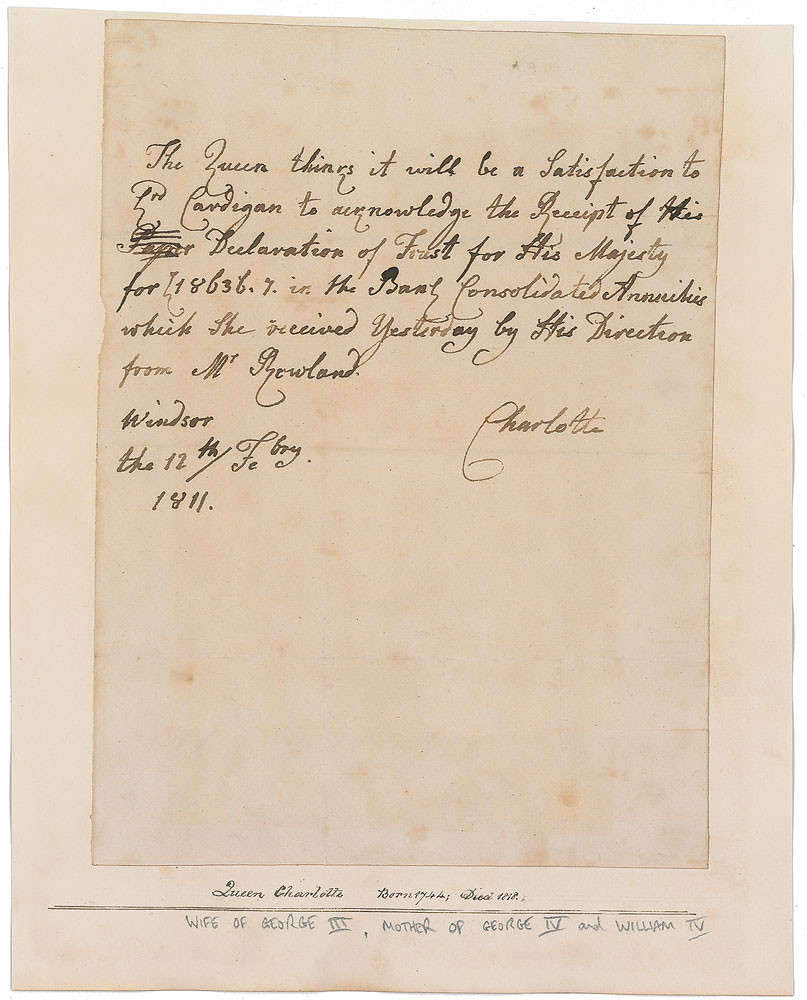 The Queen thinks it will be a Satisfaction to
Lrd Cardigan to acknowledge the Receipt of His
Paper Declaration of Trust for His Majesty
for £18636.7. in the Bank Consolidated Annuities
which She received Yesterday by His Direction
from Mr Rowland.
Windsor
Charlotte
the 12th/ Febry.
1811.
Queen Charlotte Born 1744; Died 1818.
WIFE OF GEORGE III, MOTHER OF GEORGE IV and WILLIAM IV